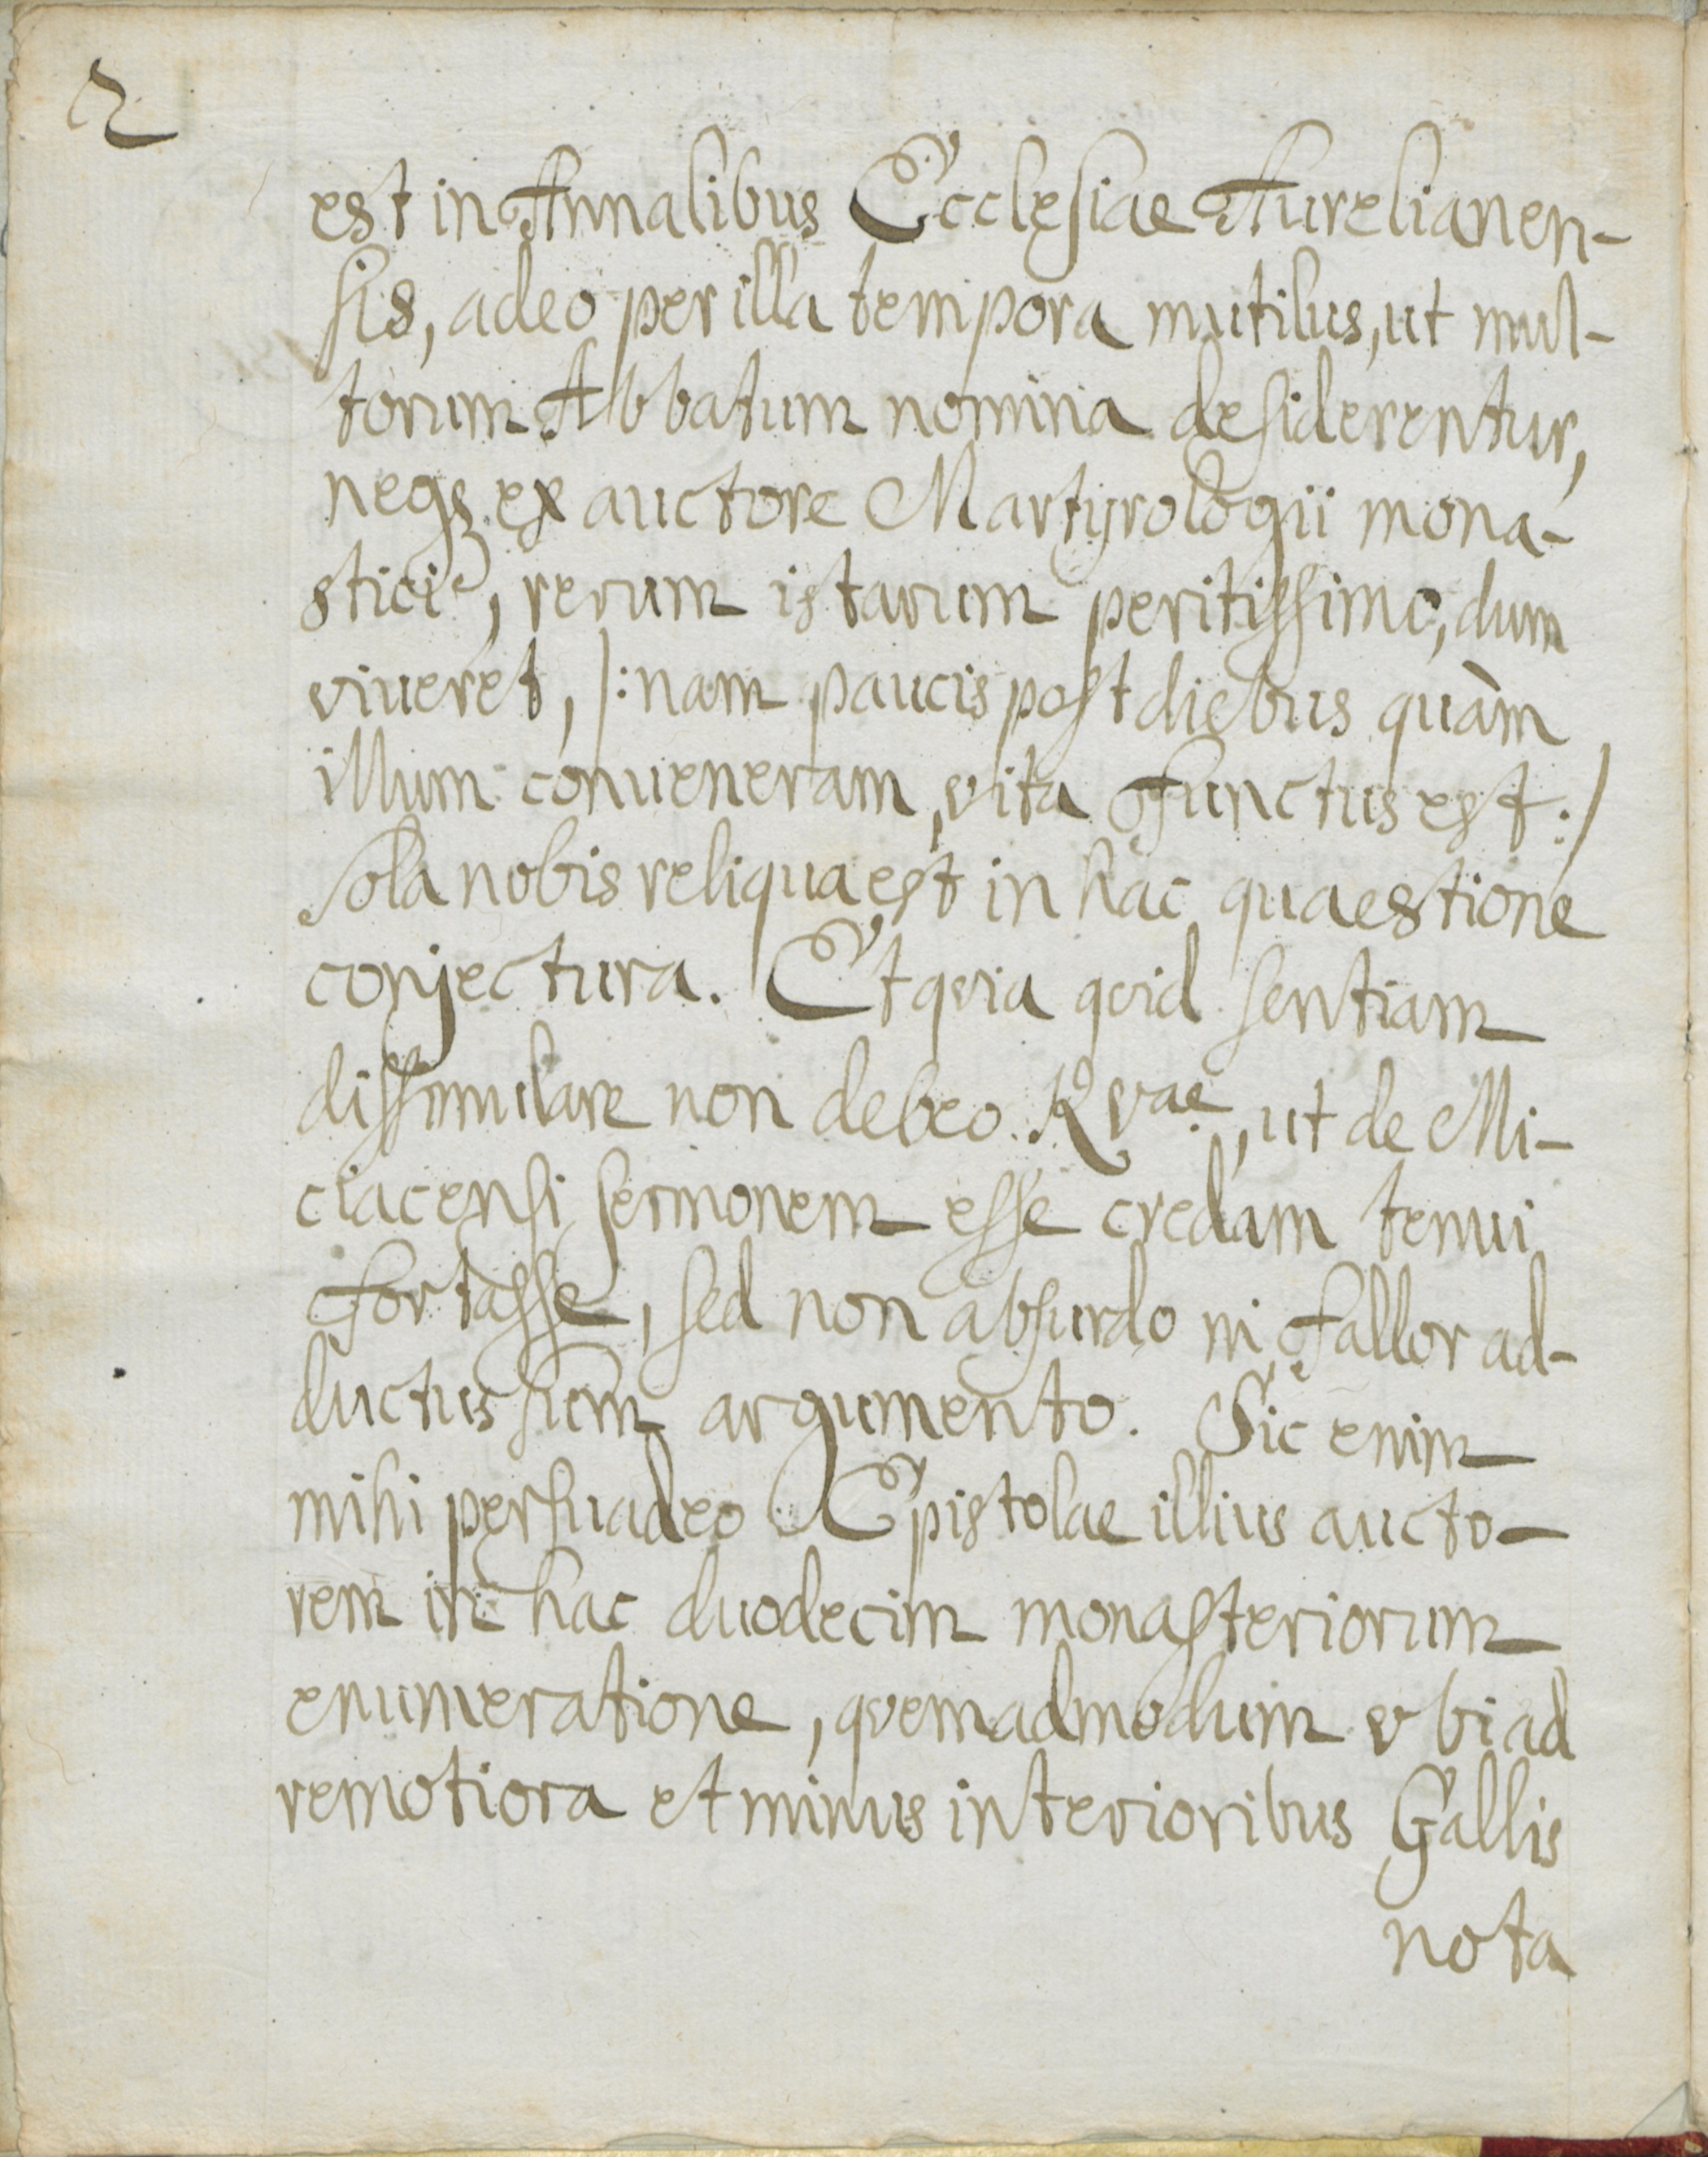 2
est in Annalibus Ecclesiae Aurelianen-
sis, adeo per illa tempora mutilus, ut mul-
torum Abbatum nomina desiderentur,
neqȝ ex auctore Martyrologii mona-
stici, rerum istarum peritissimo, dum
viueret, /: nam paucis post diebus quàm
illum conueneram, vita functus est :/
sola nobis reliqua est in hac quaestione
conjectura. Et qvia qvid sentiam
dissimulare non debeo. Qvae, ut de Mi-
ciacensi sermonem esse credam tenui
fortasse, sed non absurdo ni fallor ad-
ductus sum argumento. Sic enim
mihi persuadeo Epistolae illius aucto-
rem in hac duodecim monasteriorum
enumeratione, qvemadmodum vbi ad
remotiora et minus interioribus Gallis
nota